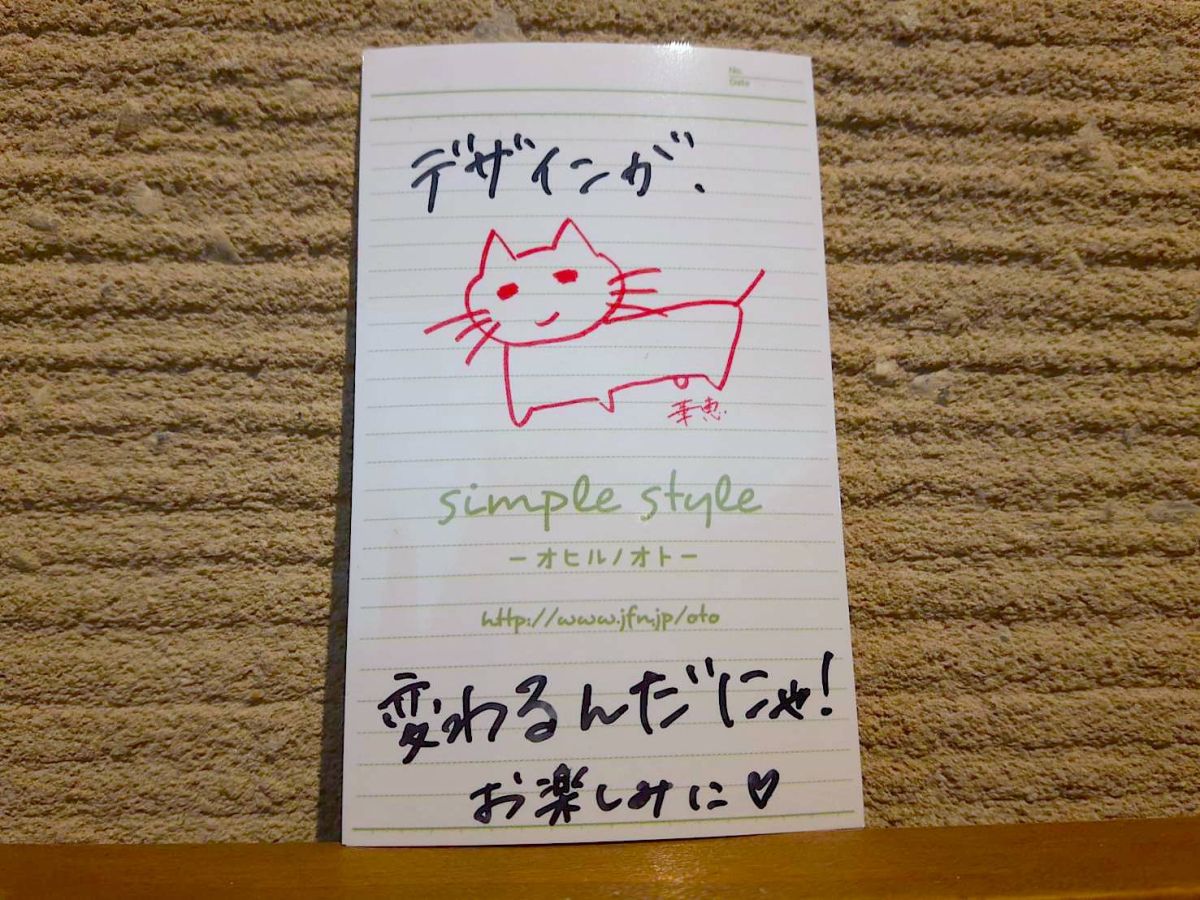 No.
Date
デザインが、
華恵
simple style
−オヒルノオト−
http://www.jfn.jp/oto
変わるんだにゃ!
お楽しみに♡